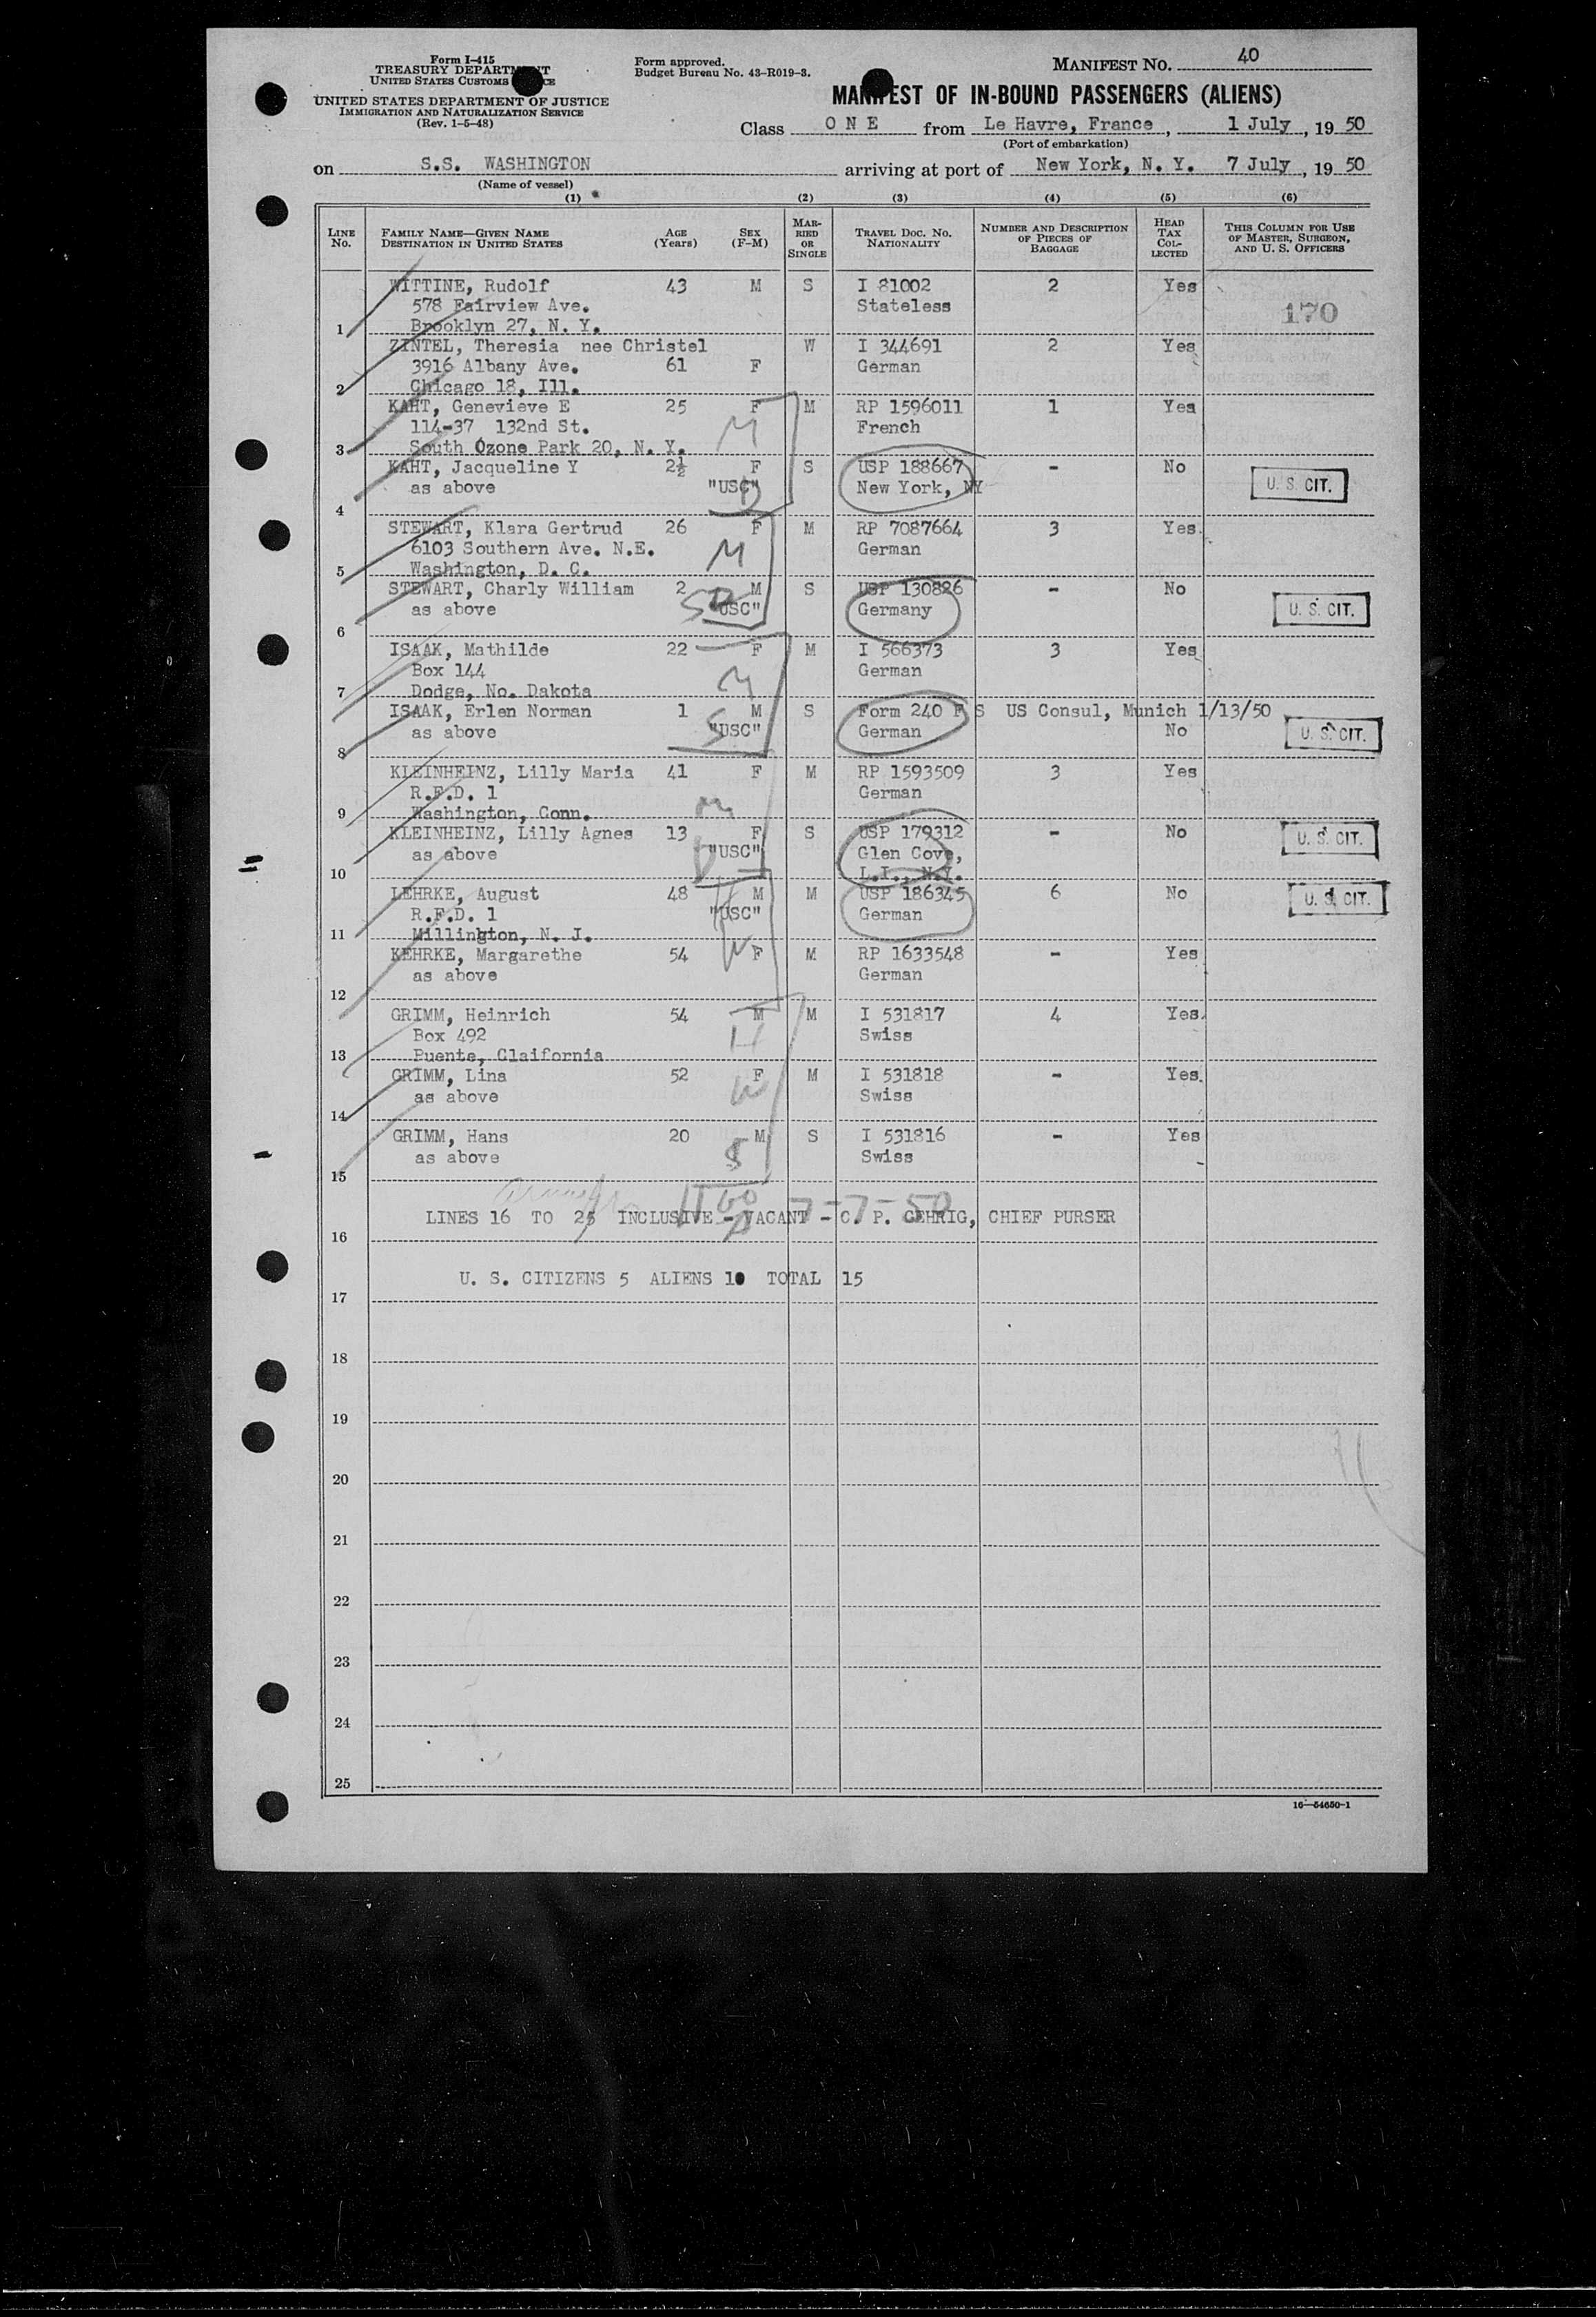 Form I-415
TREASURY DEPARTMENT
UNITED STATES CUSTOMS
UNITED STATES DEPARTMENT OF JUSTICE
IMMIGRATION AND NATURALIZATION SERVICE
(Rev. 1-5-48)
Form approved.
Budget Bureau No. 43-R019-3.
MANIFEST NO. 40
MANIFEST OF IN-BOUND PASSENGERS (ALIENS)
Class O N E from Le Havre, France, 1 July, 19 50
(Port of embarkation)
on S.S. WASHINGTON arriving at port of New York, N. Y. 7 July, 19 50
(Name of vessel)
(1) (2) (3) (4) (5) (6)
LINE No. FAMILY NAME—GIVEN NAME DESTINATION IN UNITED STATES AGE (Years) SEX (F-M) MARRIED OR SINGLE TRAVEL DOC. NO. NATIONALITY NUMBER AND DESCRIPTION OF PIECES OF BAGGAGE HEAD TAX COLLECTED THIS COLUMN FOR USE OF MASTER, SURGEON, AND U. S. OFFICERS
WITTINE, Rudolf 43 M S I 81002 2 Yes
578 Fairview Ave. Stateless 170
1 Brooklyn 27, N. Y.
ZINTEL, Theresia nee Christel W I 344691 2 Yes
3916 Albany Ave. 61 F German
2 Chicago 18, Ill.
KAHT, Genevieve E 25 F M RP 1596011 1 Yes
114-37 132nd St. M French
3 South Ozone Park 20, N. Y.
KAHT, Jacqueline Y 2½ F S USP 188667 - No
as above "USC" New York, NY U. S. CIT.
4
STEWART, Klara Gertrud 26 F M RP 7087664 3 Yes
6103 Southern Ave. N.E. M German
5 Washington, D. C.
STEWART, Charly William 2 M S USP 130826 - No
as above "USC" Germany U. S. CIT.
6
ISAAK, Mathilde 22 F M I 566373 3 Yes
Box 144 M German
7 Dodge, No. Dakota
ISAAK, Erlen Norman 1 M S Form 240 F S US Consul, Munich 1/13/50
as above S "USC" German No U. S. CIT.
8
KLEINHEINZ, Lilly Maria 41 F M RP 1593509 3 Yes
R.F.D. 1 German
9 Washington, Conn. m
KLEINHEINZ, Lilly Agnes 13 F S USP 179312 - No U. S. CIT.
as above D "USC" Glen Cove,
10 L.I., N.Y.
LEHRKE, August 48 M M USP 186345 6 No U. S. CIT.
R.F.D. 1 H "USC" German
11 Millington, N. J.
KEHRKE, Margarethe 54 W F M RP 1633548 - Yes
as above German
12
GRIMM, Heinrich 54 M M I 531817 4 Yes
Box 492 H Swiss
13 Puente, Claifornia
GRIMM, Lina 52 F M I 531818 - Yes
as above W Swiss
14
GRIMM, Hans 20 M S I 531816 - Yes
as above S Swiss
15
7-7-50
LINES 16 TO 25 INCLUSIVE - VACANT - C. P. GEHRIG, CHIEF PURSER
16
U. S. CITIZENS 5 ALIENS 10 TOTAL 15
17
18
19
20
21
22
23
24
25
16—54650-1